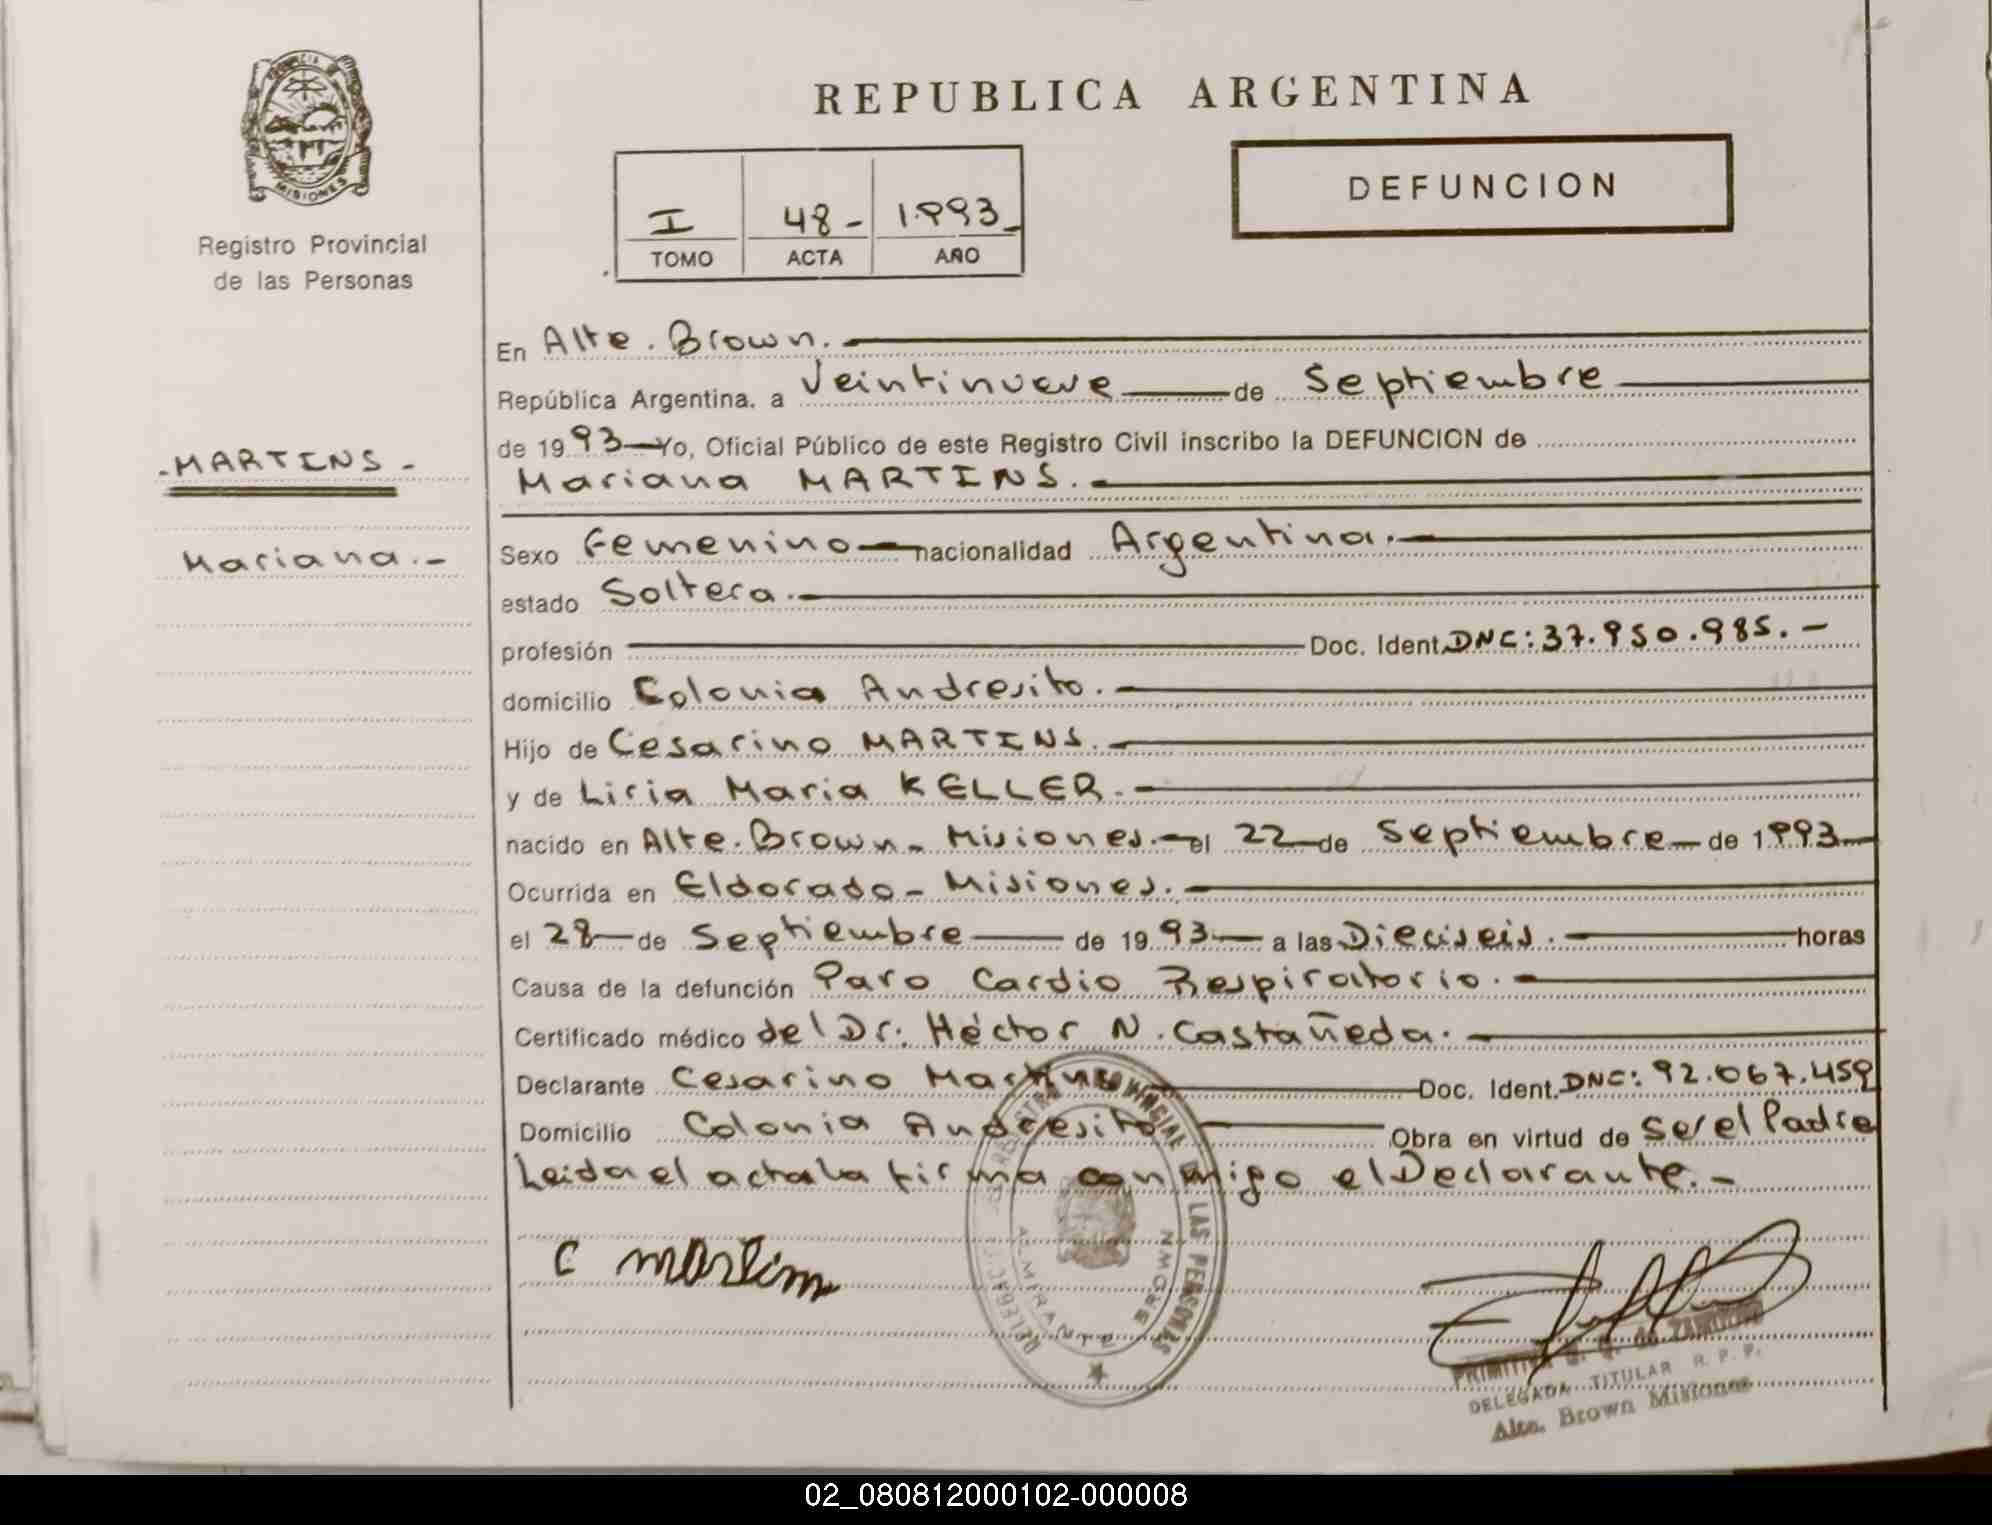 PROVINCIA DE
MISIONES
Registro Provincial
de las Personas
REPUBLICA ARGENTINA
DEFUNCION
I 48- 1.993_
TOMO ACTA AÑO
En Alte. Brown.
República Argentina. a Veintinueve de Septiembre
de 1993 Yo, Oficial Público de este Registro Civil inscribo la DEFUNCION de
-MARTINS-
Mariana MARTINS.
Mariana.-
Sexo Femenino nacionalidad Argentina.
estado Soltera.
profesión Doc. Ident. DNC: 37.950.985.-
domicilio Colonia Andresito.
Hijo de Cesarino MARTINS.
y de Liria Maria KELLER.
nacido en Alte. Brown - Misiones. el 22 de Septiembre de 1993
Ocurrida en Eldorado - Misiones.
el 28 de Septiembre de 1993 a las Dieciseis. horas
Causa de la defunción Paro Cardio Respiratorio.
Certificado médico del Dr. Héctor N. Castañeda.
Declarante Cesarino Martins Doc. Ident. DNC: 92.067.459
Domicilio Colonia Andresito Obra en virtud de Ser el Padre
Leida el acta la firma conmigo el Declarante.-
C martins
REGISTRO PROVINCIAL DE LAS PERSONAS
ALMIRANTE BROWN
PRIMITIVA
DELEGADA TITULAR R. P. P.
Alte. Brown Misiones
02_080812000102-000008